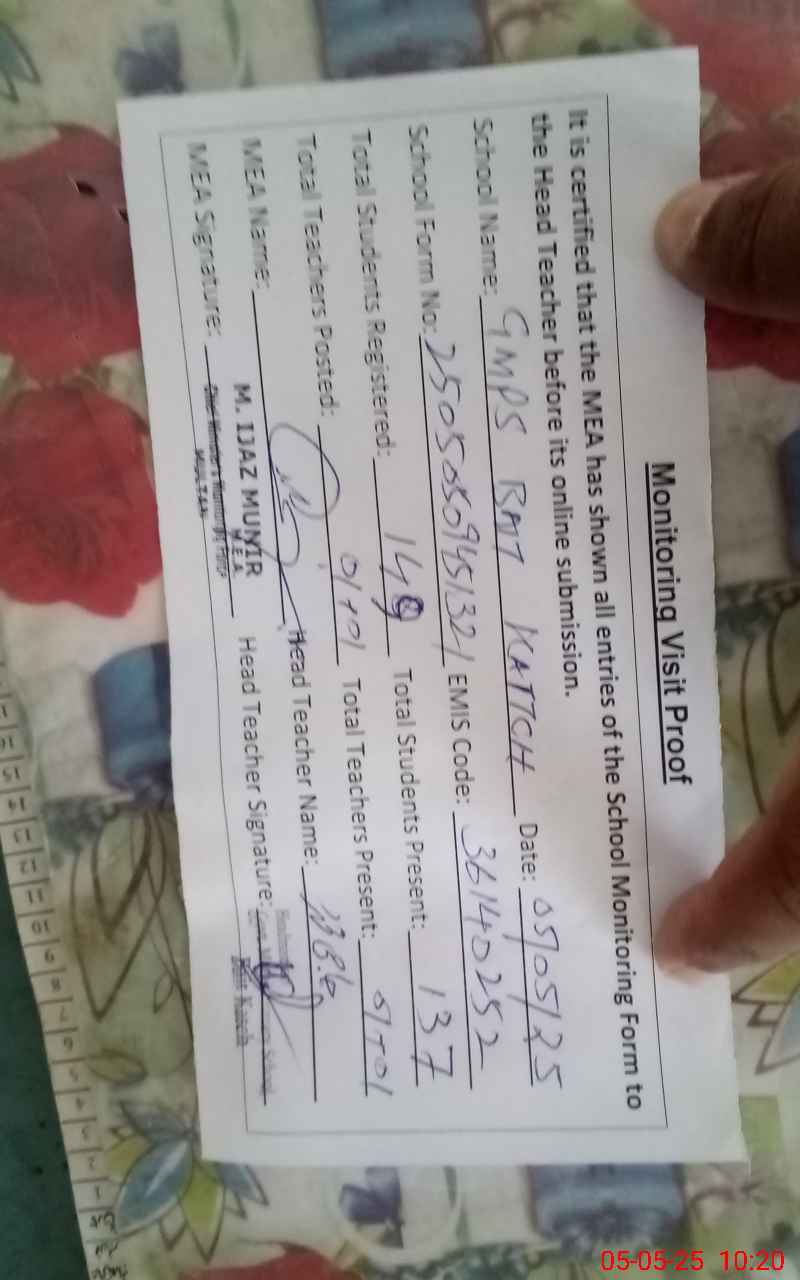 Monitoring Visit Proof
It is certified that the MEA has shown all entries of the School Monitoring Form to
the Head Teacher before its online submission.
School Name: GMPS BAIT KATTCH Date: 05/05/25
School Form No: EMIS Code: 36140252
Total Students Registered: 149 Total Students Present: 137
Total Teachers Posted: 01+01 Total Teachers Present: 01+01
MEA Name: Head Teacher Name:
MEA Signature: M. IJAZ MUNIR Head Teacher Signature:
M.E.A
MULTAN
05-05-25 10:20